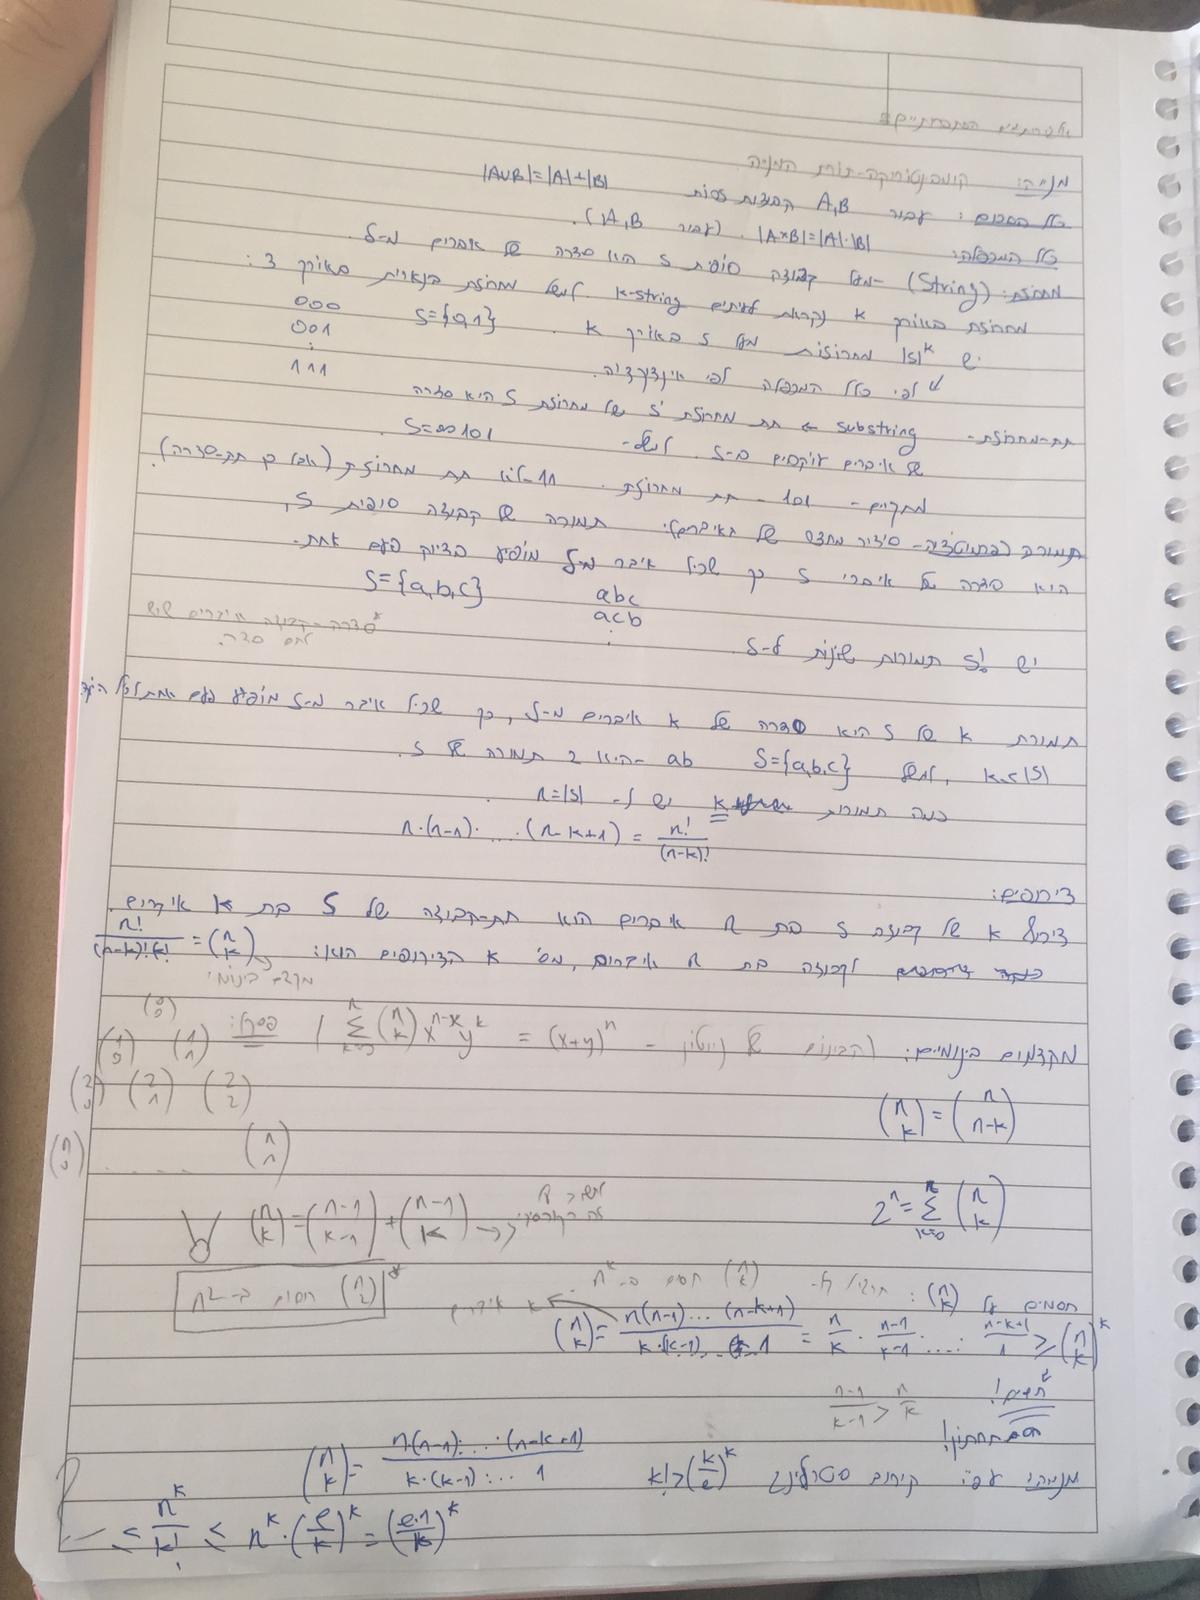 אלגוריתמים הסתברותיים
מנייה: קומבינטוריקה-תורת המניה
כלל הסכום: עבור A,B קבוצות זרות |A∪B|=|A|+|B|
כלל המכפלה: |A×B|=|A|·|B|. (עבור A,B).
מחרוזת: (String) -מעל קבוצה סופית S היא סדרה של אברים מ-S.
מחרוזת באורך k נקראת לעיתים k-string. למשל מחרוזת בינארית באורך 3:
יש |S|^k מחרוזות מעל S באורך k. S={0,1} 000
001
:
111
לפי כלל המכפלה לפי אינדוקציה.
תת-מחרוזת- substring ← תת מחרוזת S' של מחרוזת S היא סדרה
של איברים עוקבים מ-S. למשל- S=00101
מתקיים- 101 - תת מחרוזת. 11-לא תת מחרוזת (אבל כן תת-סדרה).
תמורה (פרמוטציה- סידור מחדש של האיברים): תמורה של קבוצה סופית S,
היא סדרה של איברי S כך שכל איבר מ-S מופיע בדיוק פעם אחת.
S={a,b,c} abc
acb
:
*סדרה-קבוצת איברים שיש
להם סדר.
יש S! תמורות שונות ל-S.
תמורת k של S היא סדרה של k איברים מ-S, כך שכל איבר מ-S מופיע פעם אחת לכל היותר
k<|S|, למשל S={a,b,c} ab -היא 2 תמורה של S.
כמה תמורות k יש ל- n=|S|.
n·(n-1)· ... ·(n-k+1) = n!/(n-k)!
צירופים:
צירוף k של קבוצה S בת n איברים הוא תת-קבוצה של S בת k איברים.
לקבוצה בת n איברים, מס' k הצירופים הוא: (n k) = n!/(n-k)!k!
מקדם בינומי
מקדמים בינומיים: (הבינום של ניוטון - (x+y)^n = ∑_{k=0}^{n} (n k) x^{n-k} y^k / פסקל:
(0 0)
(1 0) (1 1)
(2 0) (2 1) (2 2)
(n 0) ..... (n n)
(n k) = (n n-k)
2^n = ∑_{k=0}^{n} (n k)
(n k) = (n-1 k-1) + (n-1 k) →
חסמים על (n k): (n k) חסום ב-n^k.
*(n 2) חסום ב-n^2
k איברים
(n k) = n(n-1)...(n-k+1)/k·(k-1)...1 = n/k · (n-1)/(k-1) · .... (n-k+1)/1 ≥ (n/k)^k
(n-1)/(k-1) > n/k
חסם תחתון!
(n k) = n·(n-1)·...·(n-k+1)/k·(k-1)·...1
קירוב סטרלינג k!>(k/e)^k
≤ n^k/k! ≤ n^k·(e/k)^k = (e·n/k)^k